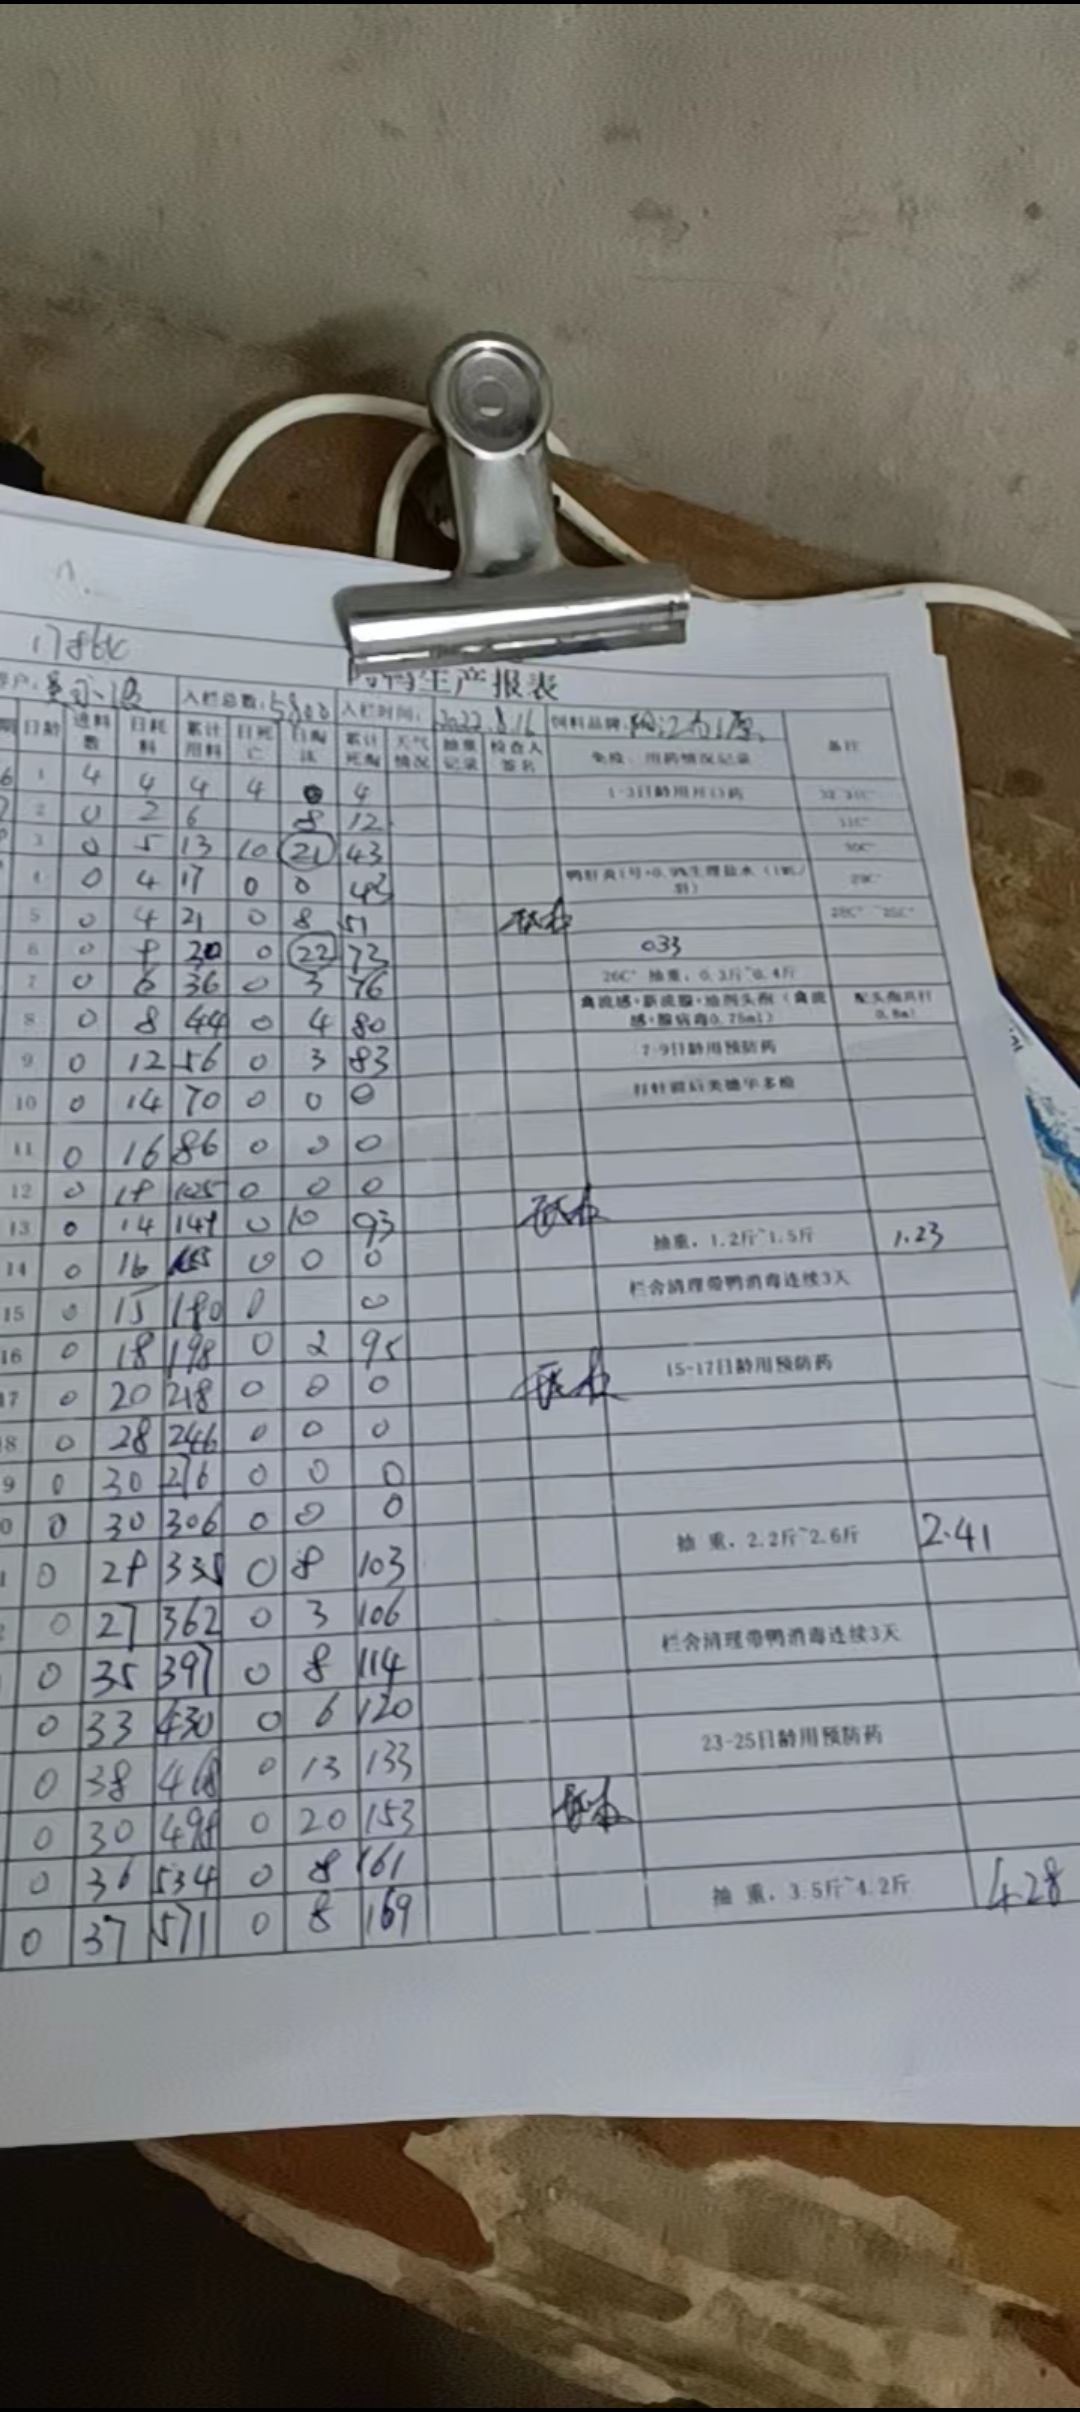 生产报表
入栏总数：5800 入栏时间：2022.8.16 饲料品牌：
日龄 进料数 日耗料 累计用料 日死亡 日淘汰 累计死淘 天气情况 抽重记录 检查人签名 免疫、用药情况记录 备注
1 4 4 4 4 0 4 1-3日龄用开口药
2 0 2 6 8 12
3 0 5 13 10 21 43 30C°
4 0 4 17 0 0 43 鸭肝炎1号+0.9%生理盐水 29C°
5 0 4 21 0 8 51
6 0 9 30 0 22 73 033
7 0 6 36 0 3 76 26C° 抽重，0.3斤~0.4斤
8 0 8 44 0 4 80 禽流感+新流腺+油剂头孢（禽流感+腺病毒0.75ml）
9 0 12 56 0 3 83 7-9日龄用预防药
10 0 14 70 0 0 0
11 0 16 86 0 0 0
12 0 19 105 0 0 0
13 0 14 149 0 10 93 抽重，1.2斤~1.5斤 1.23
14 0 16 0 0 0 栏舍清理带鸭消毒连续3天
15 0 15 180 0 0
16 0 18 198 0 2 95 15-17日龄用预防药
17 0 20 218 0 0 0
8 0 28 246 0 0 0
9 0 30 276 0 0 0
0 0 30 306 0 0 0 抽 重，2.2斤~2.6斤 2.41
1 0 29 335 0 8 103
0 27 362 0 3 106 栏舍清理带鸭消毒连续3天
0 35 397 0 8 114
0 33 430 0 6 120 23-25日龄用预防药
0 38 468 0 13 133
0 30 498 0 20 153
0 36 534 0 8 161 抽 重，3.5斤~4.2斤 4.28
0 37 571 0 8 169